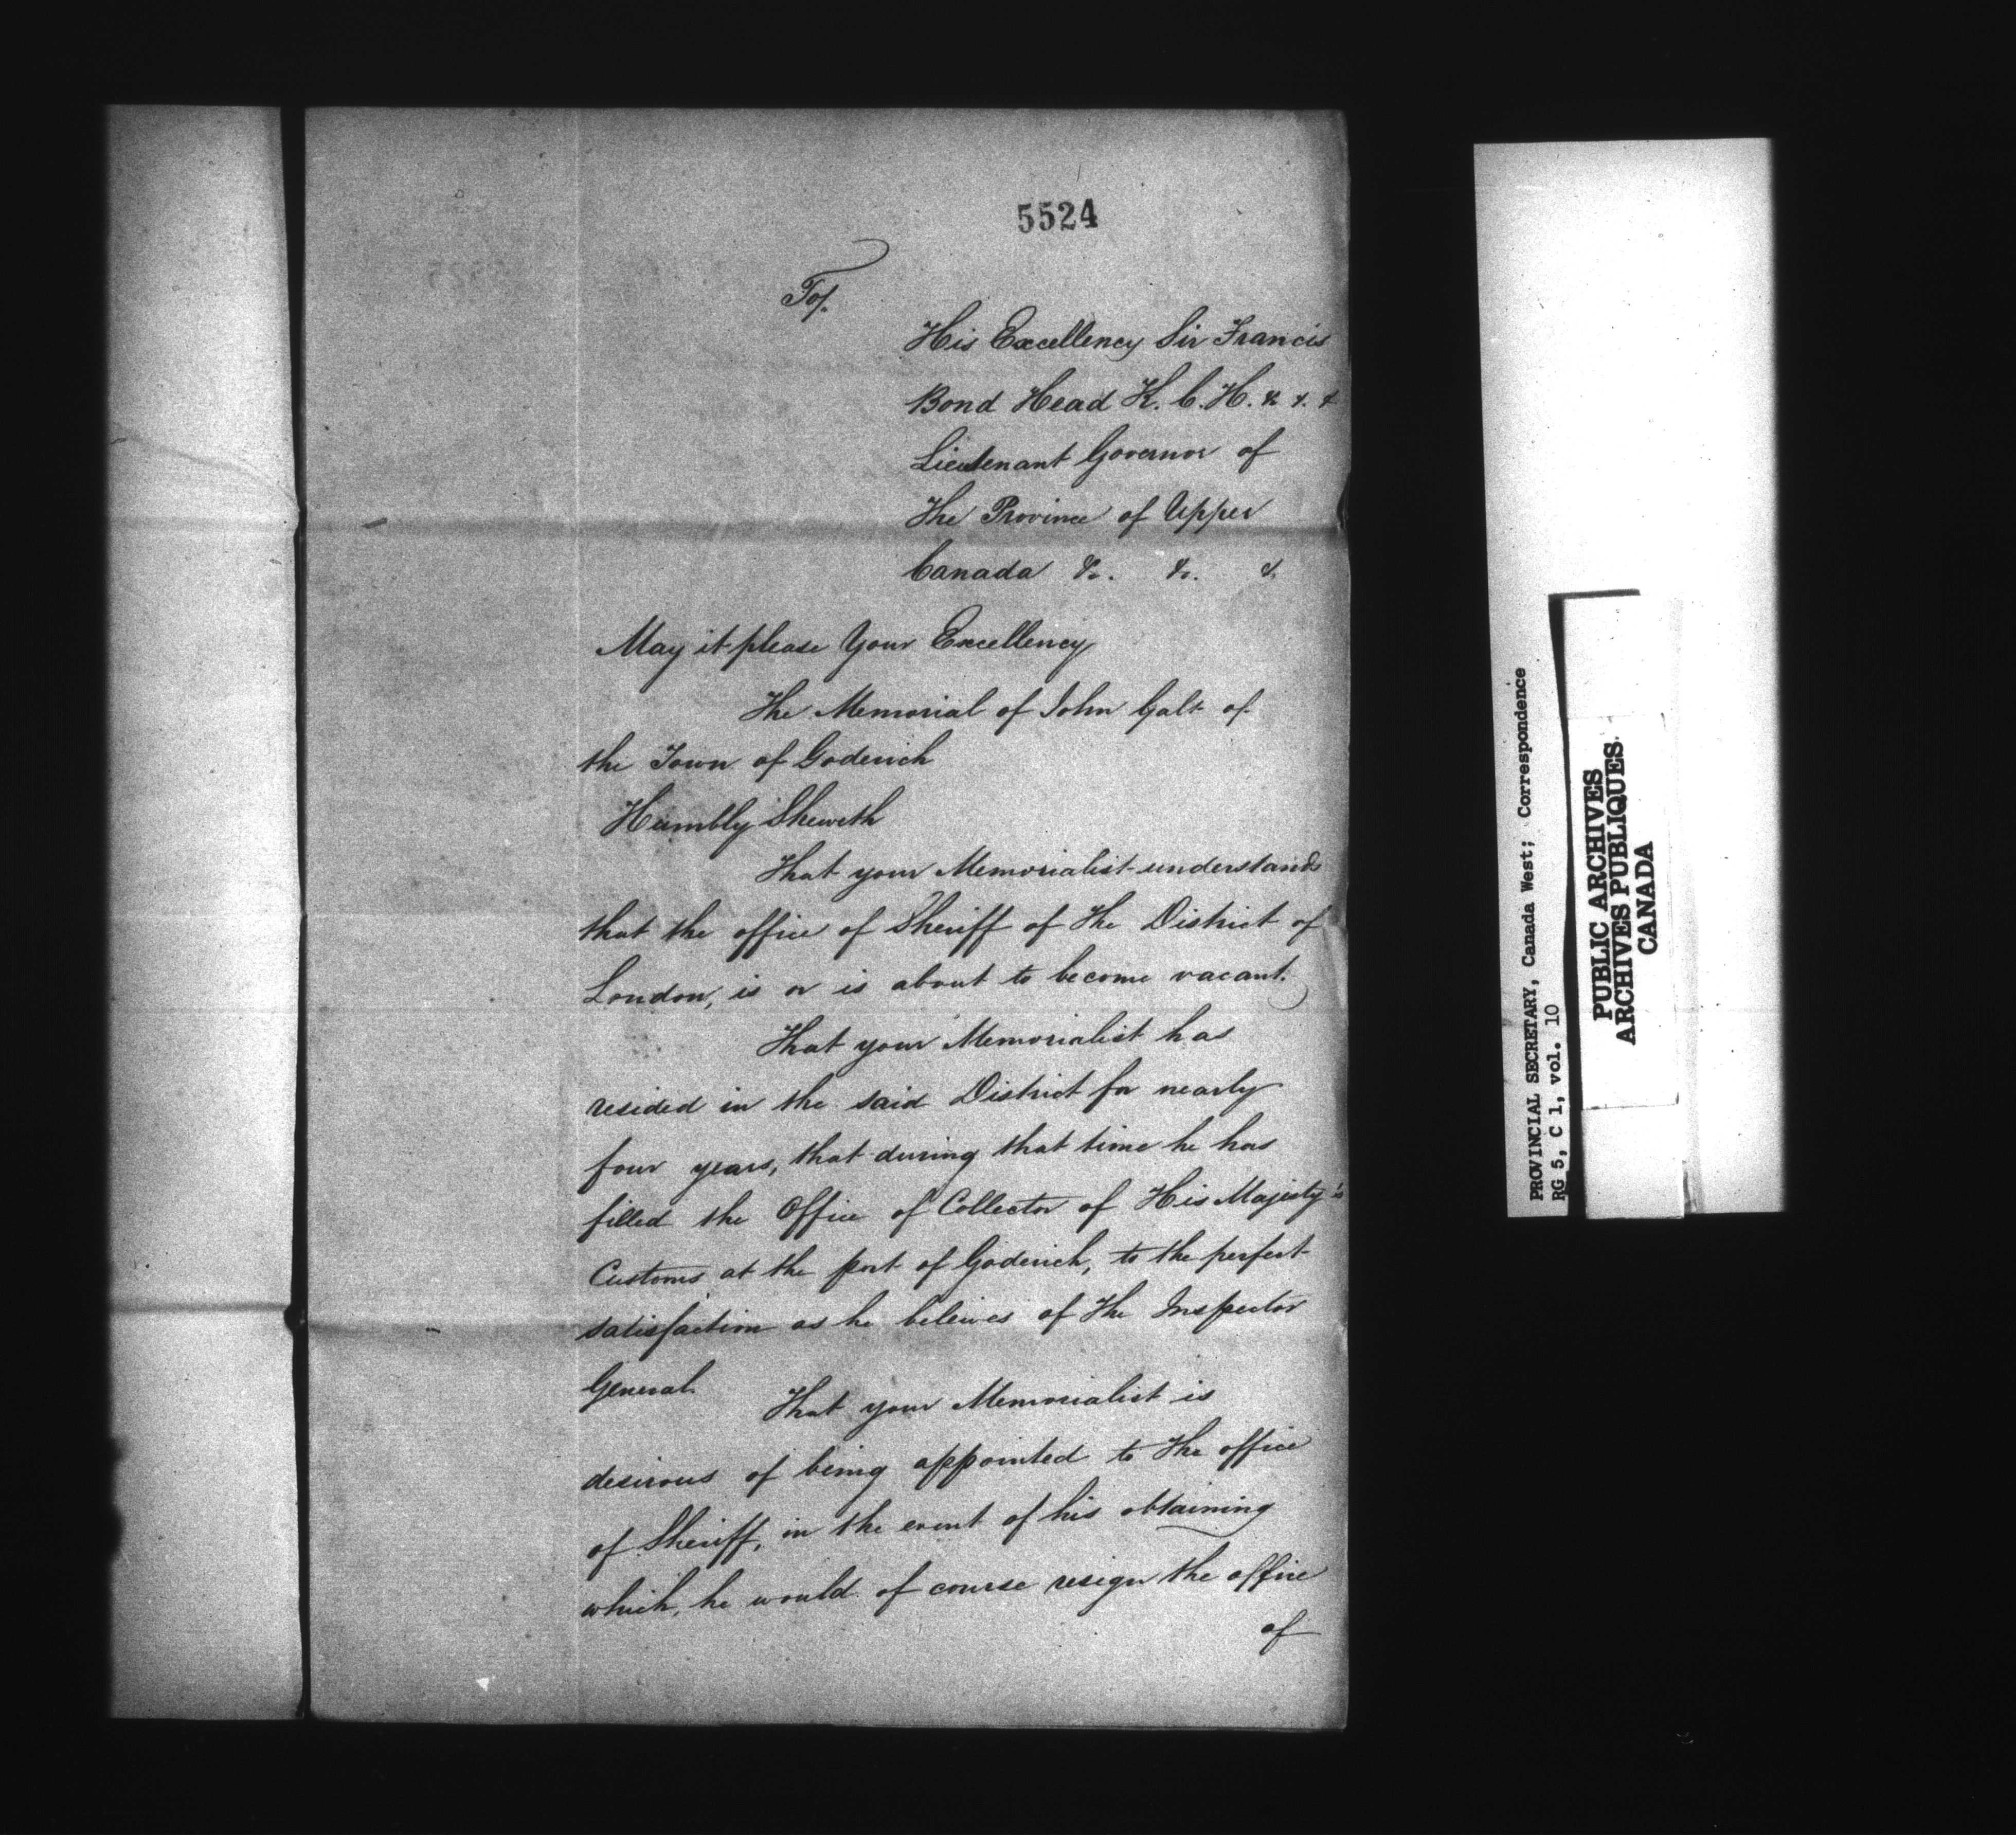 5524
To/.
His Excellency Sir Francis
Bond Head K.C.H. &. &. &
Lieutenant Governor of
The Province of Upper
Canada &c. &c. &.
May it please Your Excellency
The Memorial of John Galt of
the Town of Goderich
Humbly Sheweth
That your Memorialist understands
that the office of Sheriff of The District of
London, is or is about to become vacant.
That your Memorialist has
resided in the said District for nearly
four years, that during that time he has
filled the Office of Collector of His Majesty's
Customs at the port of Goderich, to the perfect
satisfaction as he beleives of The Inspector
General.
That your Memorialist is
desirous of being appointed to The office
of Sheriff, in the event of his obtaining
which, he would of course resign the office
of
PROVINCIAL SECRETARY, Canada West; Correspondence
RG 5, C 1, vol. 10
PUBLIC ARCHIVES
ARCHIVES PUBLIQUES
CANADA